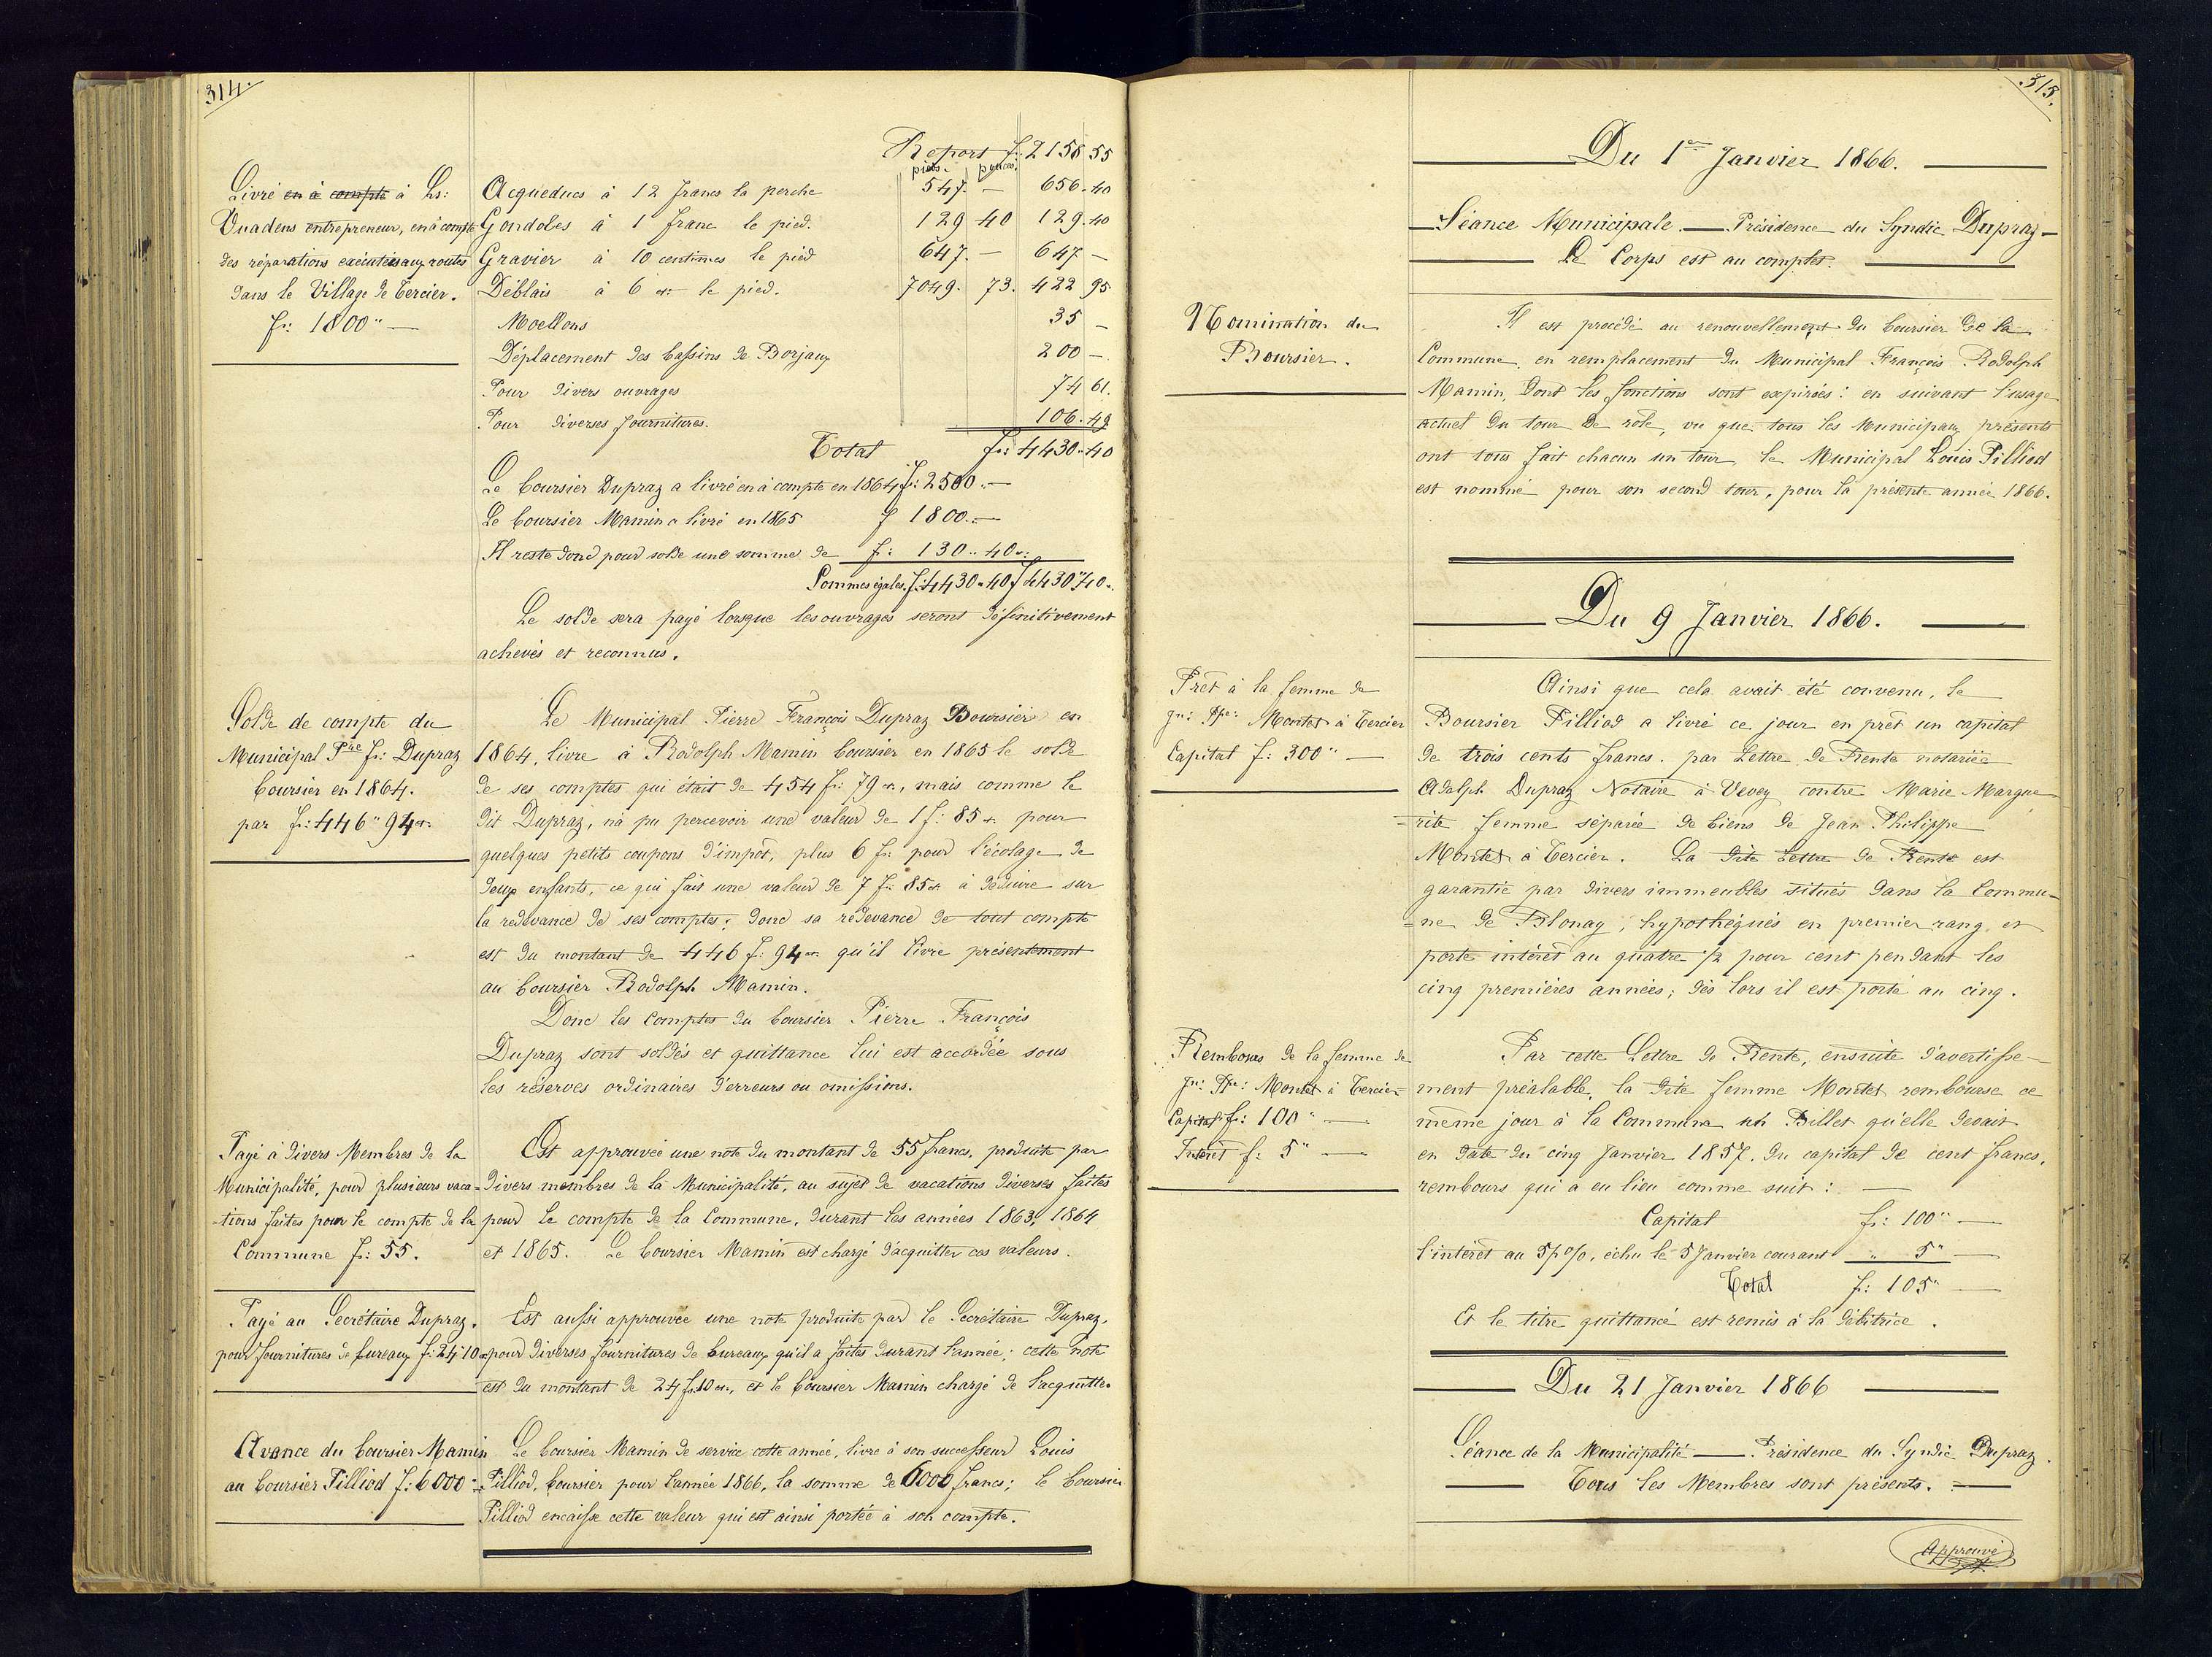 314.
Report f: 2158 55
pieds. pouces.
Livré en à compte à Ls:
Vuadens entrepreneur, en à compte
des réparations exécutées aux routes
dans le Village de Tercier.
fr: 1800 " —
Acqueducs à 12 francs la perche 547. — 656. 40
Gondoles à 1 franc le pied. 129 40 129. 40
Gravier à 10 centimes le pied 647. — 647 —
Déblais à 6 cs: le pied. 7049. 73. 422 95
Moellons 35 —
Déplacement des bassins de Borjaux 200 —
Pour divers ouvrages 74 61.
Pour diverses fournitures. 106. 49
Total fr: 4430. 40
Le boursier Dupraz a livré en à compte en 1864 f: 2500. —
Le boursier Mamin a livré en 1865 f 1800. —
Il reste donc pour solde une somme de f: 130 .. 40 cs:
Sommes égales. f: 4430 " 40 f 4430 " 40 .
Le solde sera payé lorsque les ouvrages seront définitivement
achevés et reconnus.
Solde de compte du
Municipal Pre fs: Dupraz
boursier en 1864.
par fr: 446 " 94 cs.
Le Municipal Pierre François Dupraz Boursier en
1864, livre à Rodolph Mamin boursier en 1865 le solde
de ses comptes qui était de 454 fr: 79 cs, mais comme le
dit Dupraz, n'a pu percevoir une valeur de 1 f: 85 cs. pour
quelques petits coupons d'impôt, plus 6 fr: pour l'écolage de
deux enfants, ce qui fait une valeur de 7 fr: 85 cs. à déduire sur
la redevance de ses comptes; donc sa redevance de tout compte
est du montant de 446 f: 94 cs. qu'il livre présentement
au boursier Rodolph Mamin.
Donc les comptes du boursier Pierre François
Dupraz sont soldés et quittance lui est accordée sous
les réserves ordinaires d'erreurs ou omissions.
Payé à divers Membres de la
Municipalité, pour plusieurs vaca-
tions faites pour le compte de la
Commune fr: 55.
Est approuvée une note du montant de 55 francs, produite par
divers membres de la Municipalité, au sujet de vacations diverses faites
pour le compte de la Commune, durant les années 1863, 1864
et 1865. Le boursier Mamin est chargé d'acquitter ces valeurs.
Payé au Secrétaire Dupraz.
pour fournitures de bureaux f: 24 " 10 cs
Est aussi approuvée une note produite par le Secrétaire Dupraz,
pour diverses fournitures de bureaux qu'il a faites durant l'année; cette note
est du montant de 24 fr. 10 cs, et le boursier Mamin chargé de l'acquitter
Avance du boursier Mamin
au boursier Pilliod f: 6000 "
Le boursier Mamin de service cette année, livre à son successeur Louis
Pilliod, boursier pour l'année 1866, la somme de 6000 francs; le boursier
Pilliod encaisse cette valeur qui est ainsi portée à son compte.
315.
Du 1er Janvier 1866.
Séance Municipale. — Présidence du Syndic Dupraz —
Le Corps est au complet.
Nomination du
Boursier.
Il est procédé au renouvellement du boursier de la
Commune, en remplacement du Municipal François Rodolph
Mamin, dont les fonctions sont expirées: en suivant l'usage
actuel du tour de rôle, vu que tous les Municipaux présents
ont tous fait chacun un tour, le Municipal Louis Pilliod
est nommé pour son second tour, pour la présente année 1866.
Du 9 Janvier 1866.
Prêt à la femme de
Jn: Ppe: Montet à Tercier
Capital f: 300 " —
Ainsi que cela avait été convenu, le
Boursier Pilliod a livré ce jour en prêt un capital
de trois cents francs. par Lettre de Rente notariée
Adolph Dupraz Notaire à Vevey contre Marie Margue
=rite femme séparée de biens de Jean Philippe
Montet à Tercier. La dite Lettre de Rente est
garantie par divers immeubles situés dans la Commu-
=ne de Blonay, hypothéqués en premier rang, et
porte intérêt au quatre 1/2 pour cent pendant les
cinq premières années; dès lors il est porté au cinq.
Rembours de la femme de
Jn: Ppe: Montet à Tercier=
Capital fr: 100 " —
Intérêt f: 5 " —
Par cette Lettre de Rente, ensuite d'avertisse-
ment préalable, la dite femme Montet rembourse ce
même jour à la Commune un Billet qu'elle devait
en date du cinq Janvier 1857, du capital de cent francs,
rembours qui a eu lieu comme suit: —
Capital fr: 100 " —
l'intérêt au 5 p%, échu le 5 Janvier courant " 5 " —
Total f: 105 " —
Et le titre quittancé est remis à la débitrice.
Du 21 Janvier 1866
Séance de la Municipalité — Présidence du Syndic Dupraz.
Tous les Membres sont présents. —
Approuvé